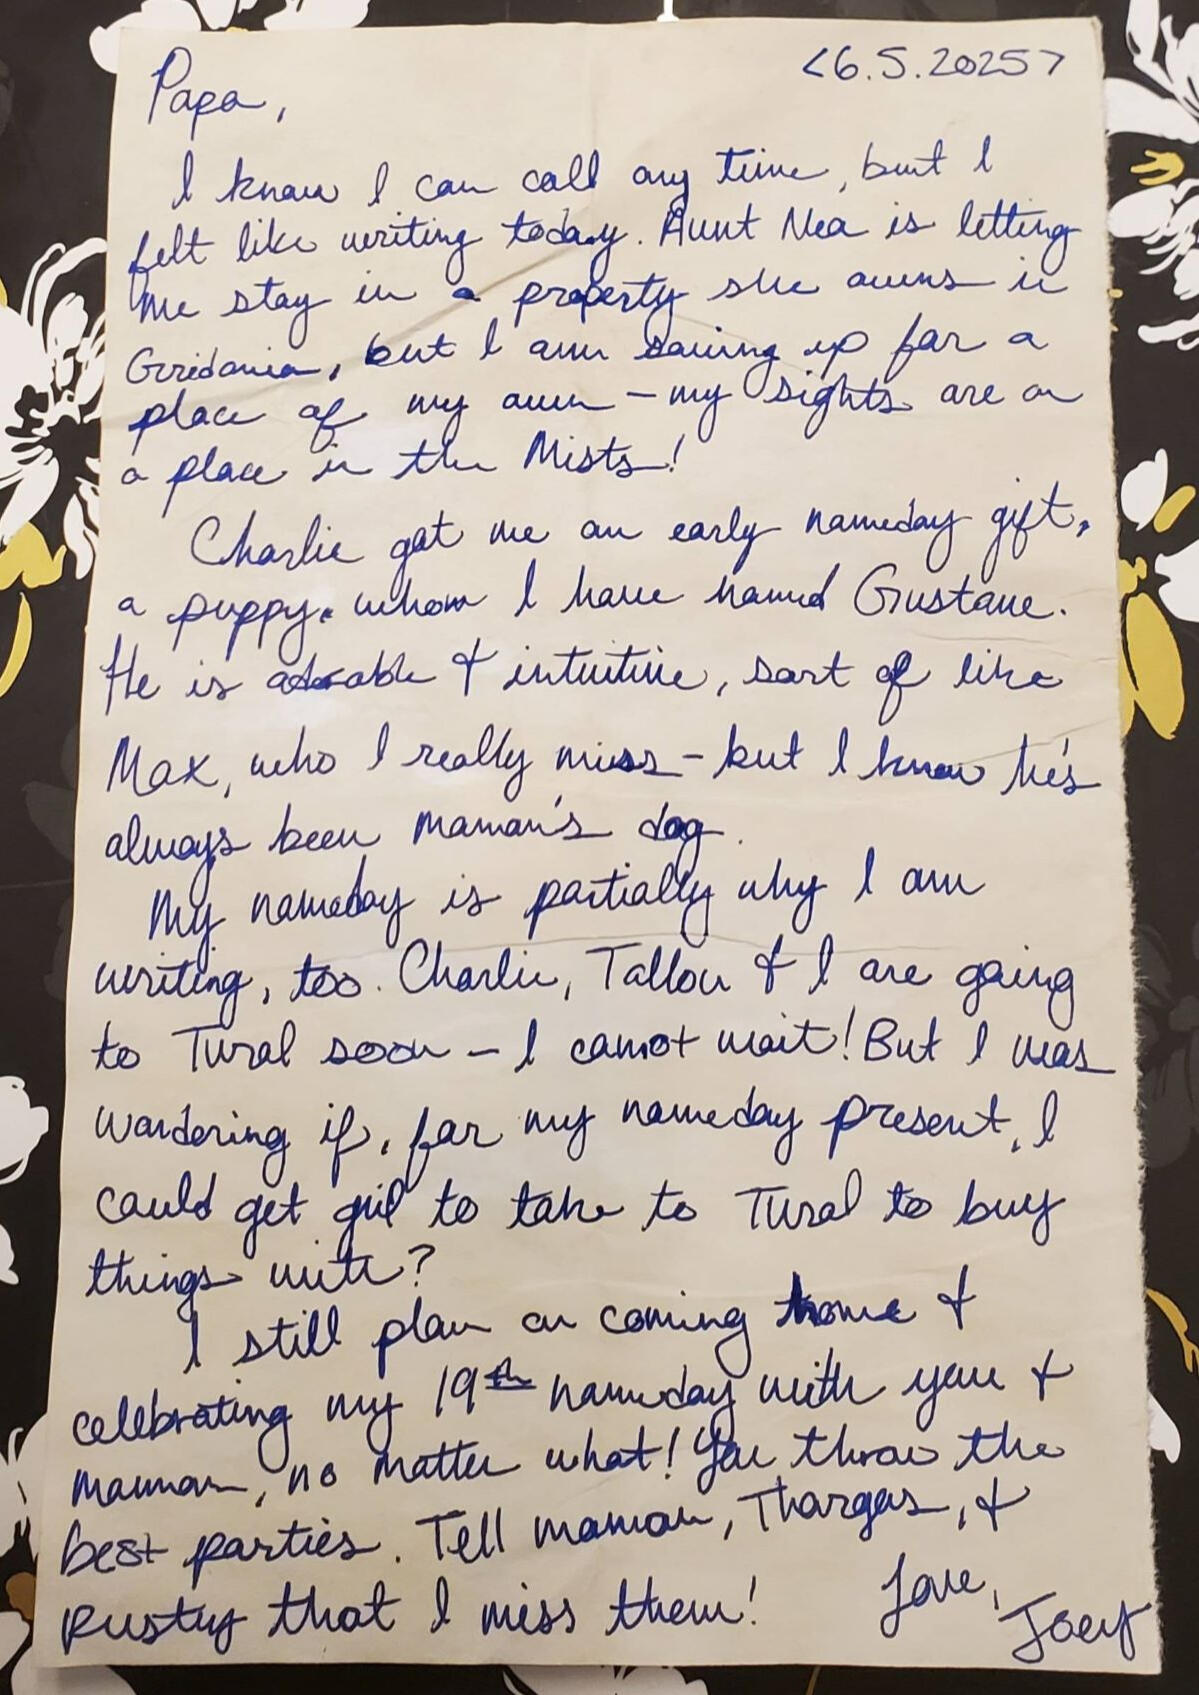 <6.5.2025>
Papa,
I know I can call any time, but I
felt like writing today. Aunt Nea is letting
me stay in a property she owns in
Gridania, but I am saving up for a
place of my own - my sights are on
a place in the Mists!
Charlie got me an early nameday gift,
a puppy, whom I have named Gustave.
He is adorable & intuitive, sort of like
Max, who I really miss - but I know he's
always been maman's dog.
My nameday is partially why I am
writing, too. Charlie, Tallou & I are going
to Tural soon - I cannot wait! But I was
wondering if, for my nameday present, I
could get gil to take to Tural to buy
things with?
I still plan on coming home &
celebrating my 19th nameday with you &
maman, no matter what! You throw the
best parties. Tell maman, Thorgas, &
Rusty that I miss them!
Love,
Joey